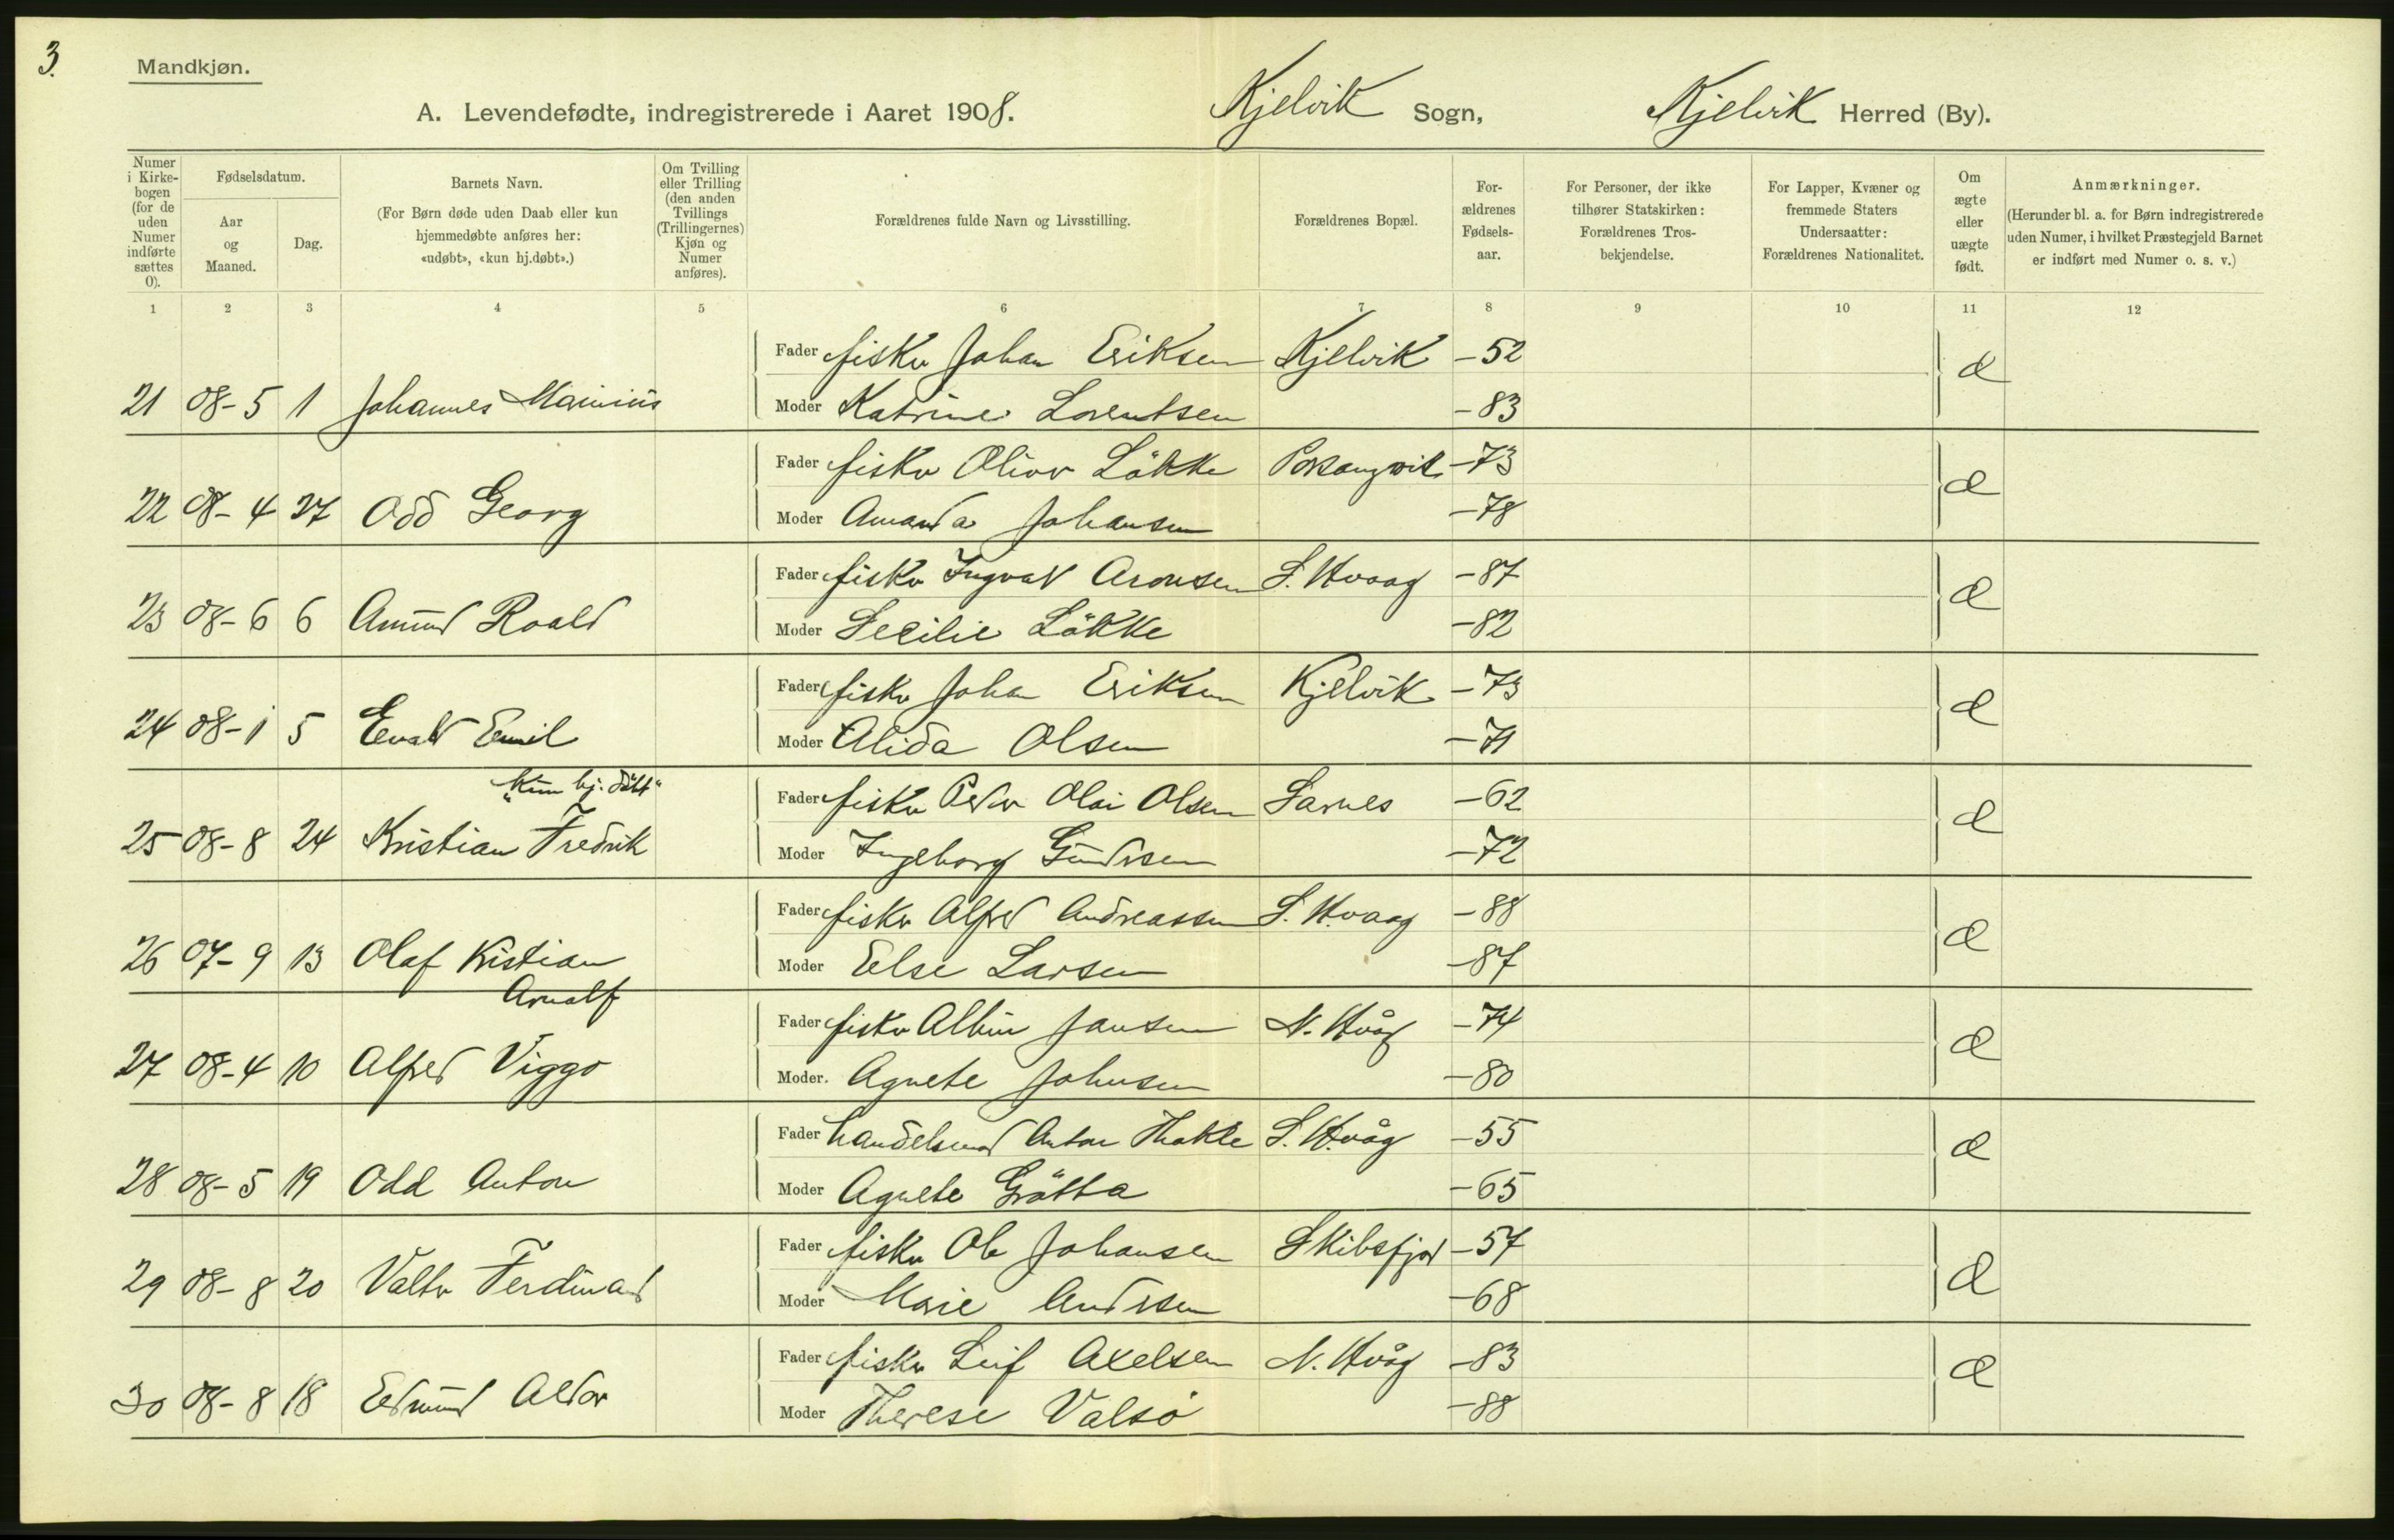 3.
Mandkjøn.
A. Levendefødte, indregistrerede i Aaret 1908. Kjelvik Sogn, Kjelvik Herred (By).
Numer i Kirkebogen (for de uden Numer indførte sættes 0).
Fødselsdatum.
Aar og Maaned.
Dag.
Barnets Navn.
(For Børn døde uden Daab eller kun hjemmedøbte anføres her: «udøbt», «kun hj.døbt».)
Om Tvilling eller Trilling (den anden Tvillings (Trillingernes) Kjøn og Numer anføres).
Forældrenes fulde Navn og Livsstilling.
Forældrenes Bopæl.
Forældrenes Fødselsaar.
For Personer, der ikke tilhører Statskirken: Forældrenes Trosbekjendelse.
For Lapper, Kvæner og fremmede Staters Undersaatter: Forældrenes Nationalitet.
Om ægte eller uægte født.
Anmærkninger.
(Herunder bl. a. for Børn indregistrerede uden Numer, i hvilket Præstegjeld Barnet er indført med Numer o. s. v.)
1 2 3 4 5 6 7 8 9 10 11 12
Fader fisker Johan Eriksen Kjelvik -52 Æ
21 08-5 1 Johannes Marinius Moder Katrine Lorentsen -83
Fader fisker Oliver Løkke Porsangvik -73 Æ
22 08-4 27 Odd Georg Moder Amanda Johansen -78
Fader fisker Ingvald Aronsen S. Hvaag -87 Æ
23 08-6 6 Amund Roald Moder Secilie Løkke -82
Fader fisker Johan Eriksen Kjelvik -73 Æ
24 08-1 5 Evald Emil Moder Alida Olsen -71
"Kun hj. døbt"
Fader fisker Peder Olai Olsen Sarnes -62 Æ
25 08-8 24 Kristian Fredrik Moder Ingeborg Gundersen -72
Fader fisker Alfred Andreassen S. Hvaag -88 Æ
26 07-9 13 Olaf Kristian Moder Else Larsen -87
Arnolf
Fader fisker Albin Jansen N. Hvåg -74 Æ
27 08-4 10 Alfred Viggo Moder. Agnete Johnsen -80
Fader handelsmand Anton Thokle S. Hvåg -55 Æ
28 08-5 19 Odd Anton Moder Agnete Grøtta -65
Fader fisker Ole Johansen Skibsfjord -57 Æ
29 08-8 20 Valter Ferdinand Moder Marie Andersen -68
Fader fisker Leif Axelsen N. Hvåg -83 Æ
30 08-8 18 Edmund Aldor Moder Therese Valsø -88